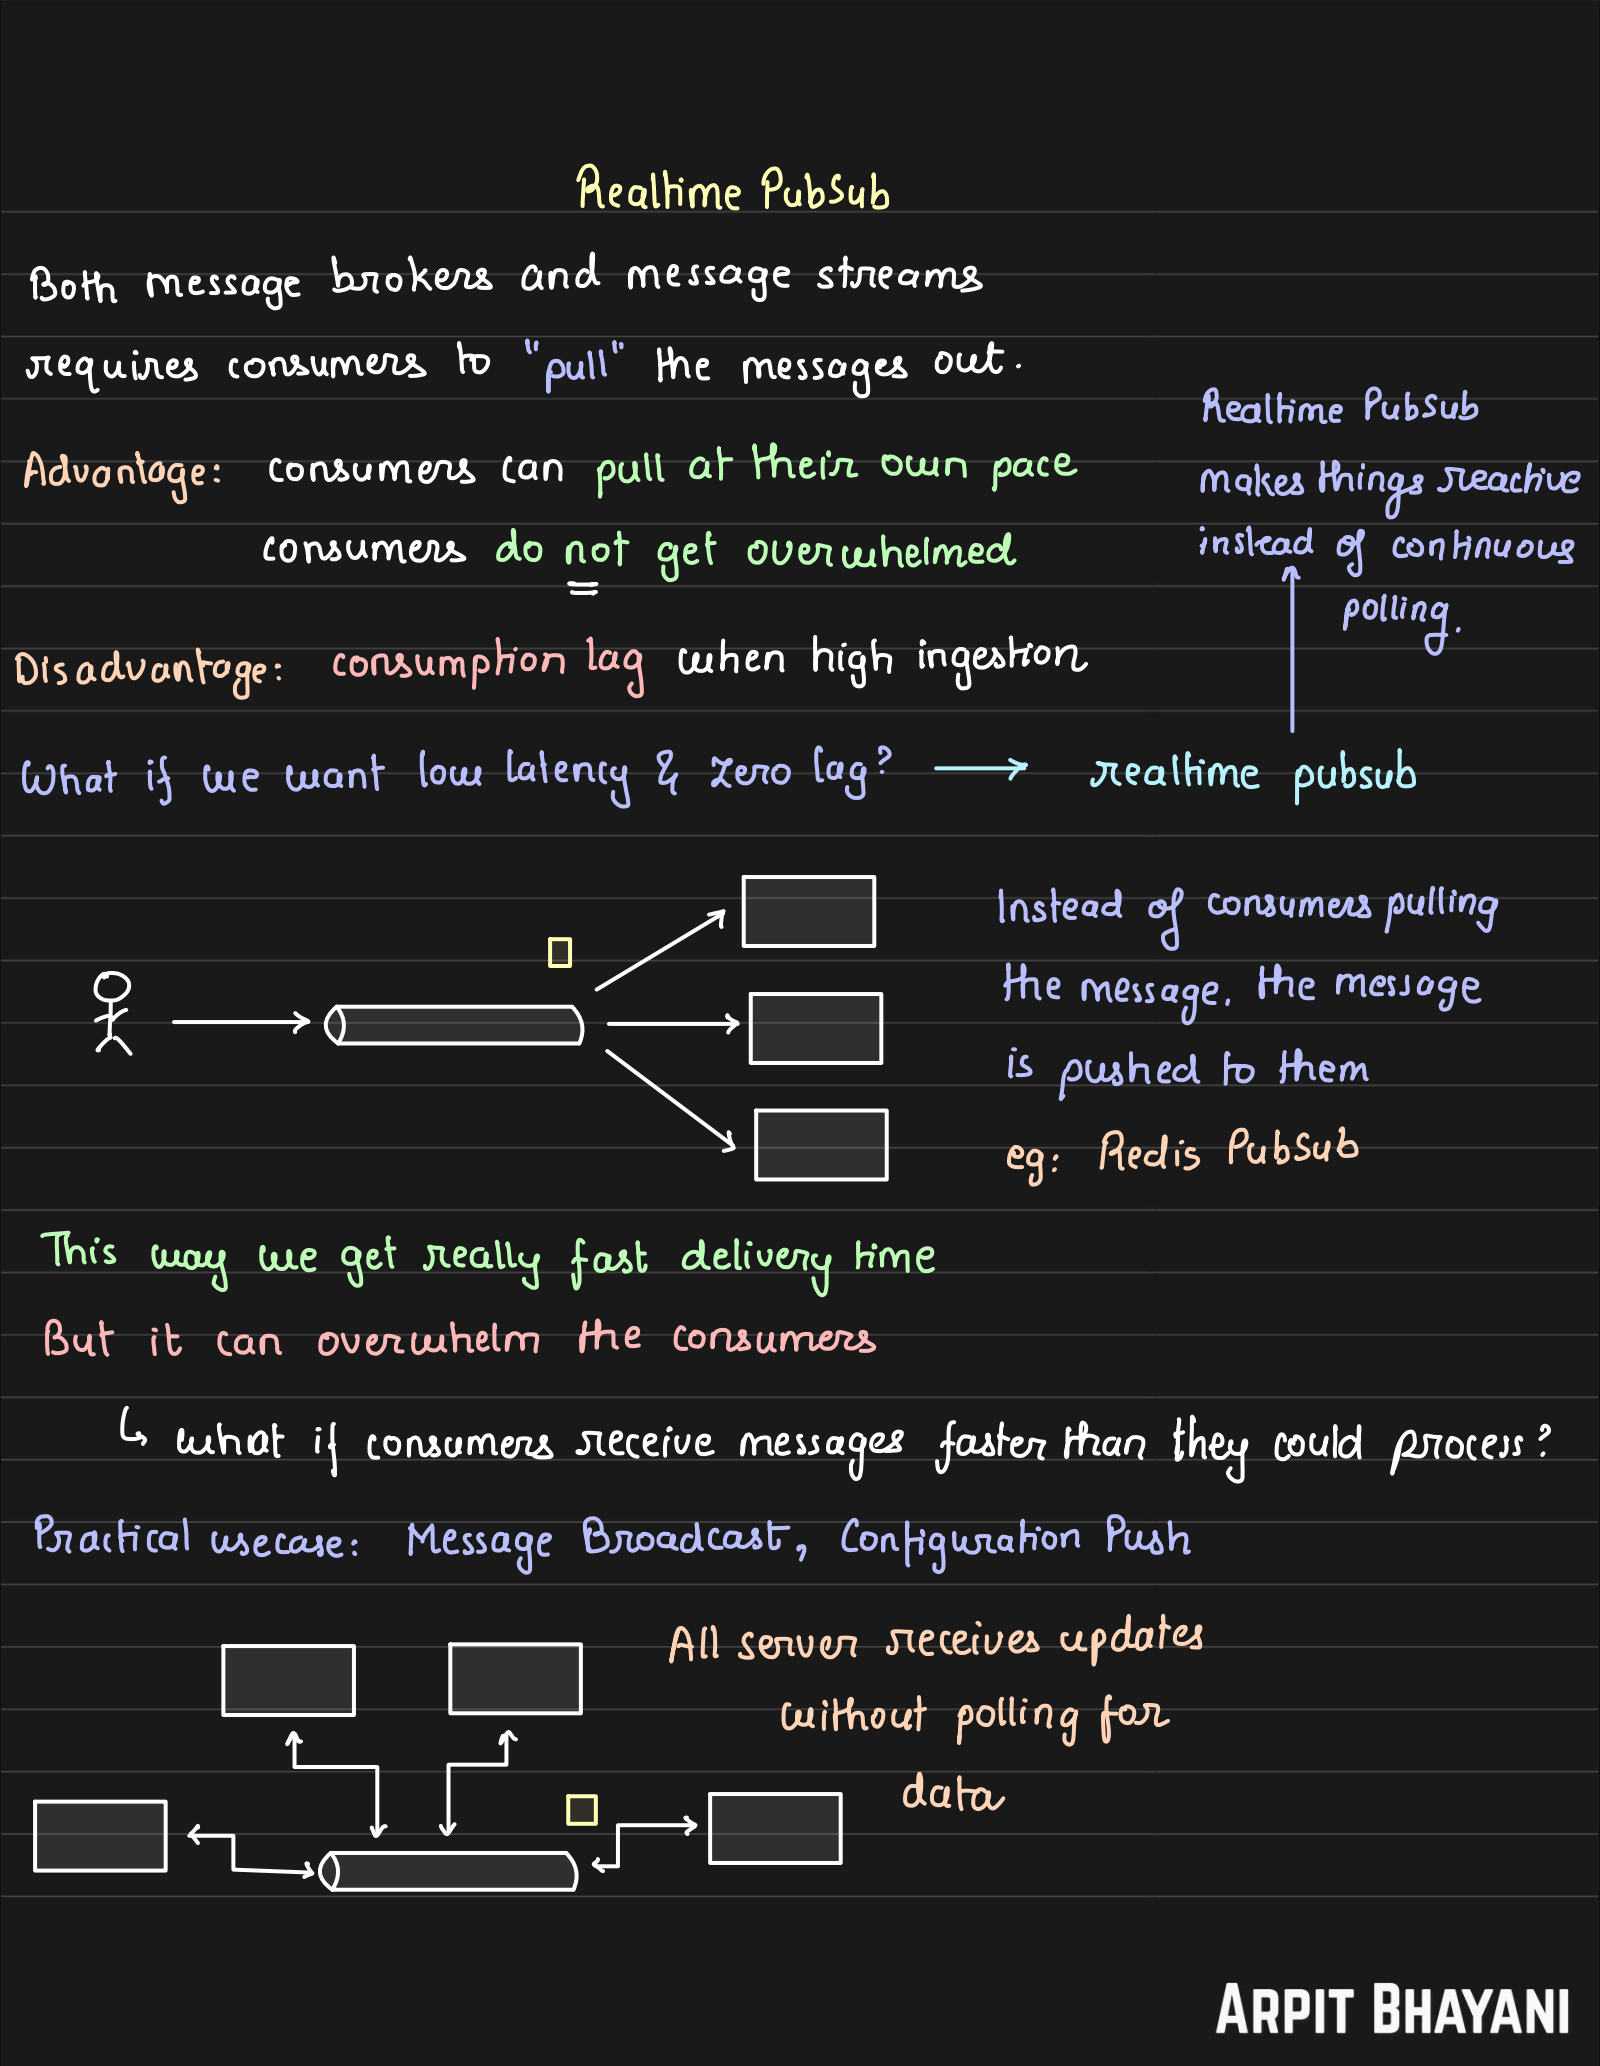 Realtime PubSub
Both message brokers and message streams
requires consumers to "pull" the messages out.
Advantage: consumers can pull at their own pace
consumers do not get overwhelmed
Disadvantage: consumption lag when high ingestion
Realtime PubSub
makes things reactive
instead of continuous
polling.
What if we want low latency & zero lag? → realtime pubsub
Instead of consumers pulling
the message. the message
is pushed to them
eg: Redis PubSub
This way we get really fast delivery time
But it can overwhelm the consumers
↳ what if consumers receive messages faster than they could process?
Practical usecase: Message Broadcast, Configuration Push
All server receives updates
without polling for
data
ARPIT BHAYANI